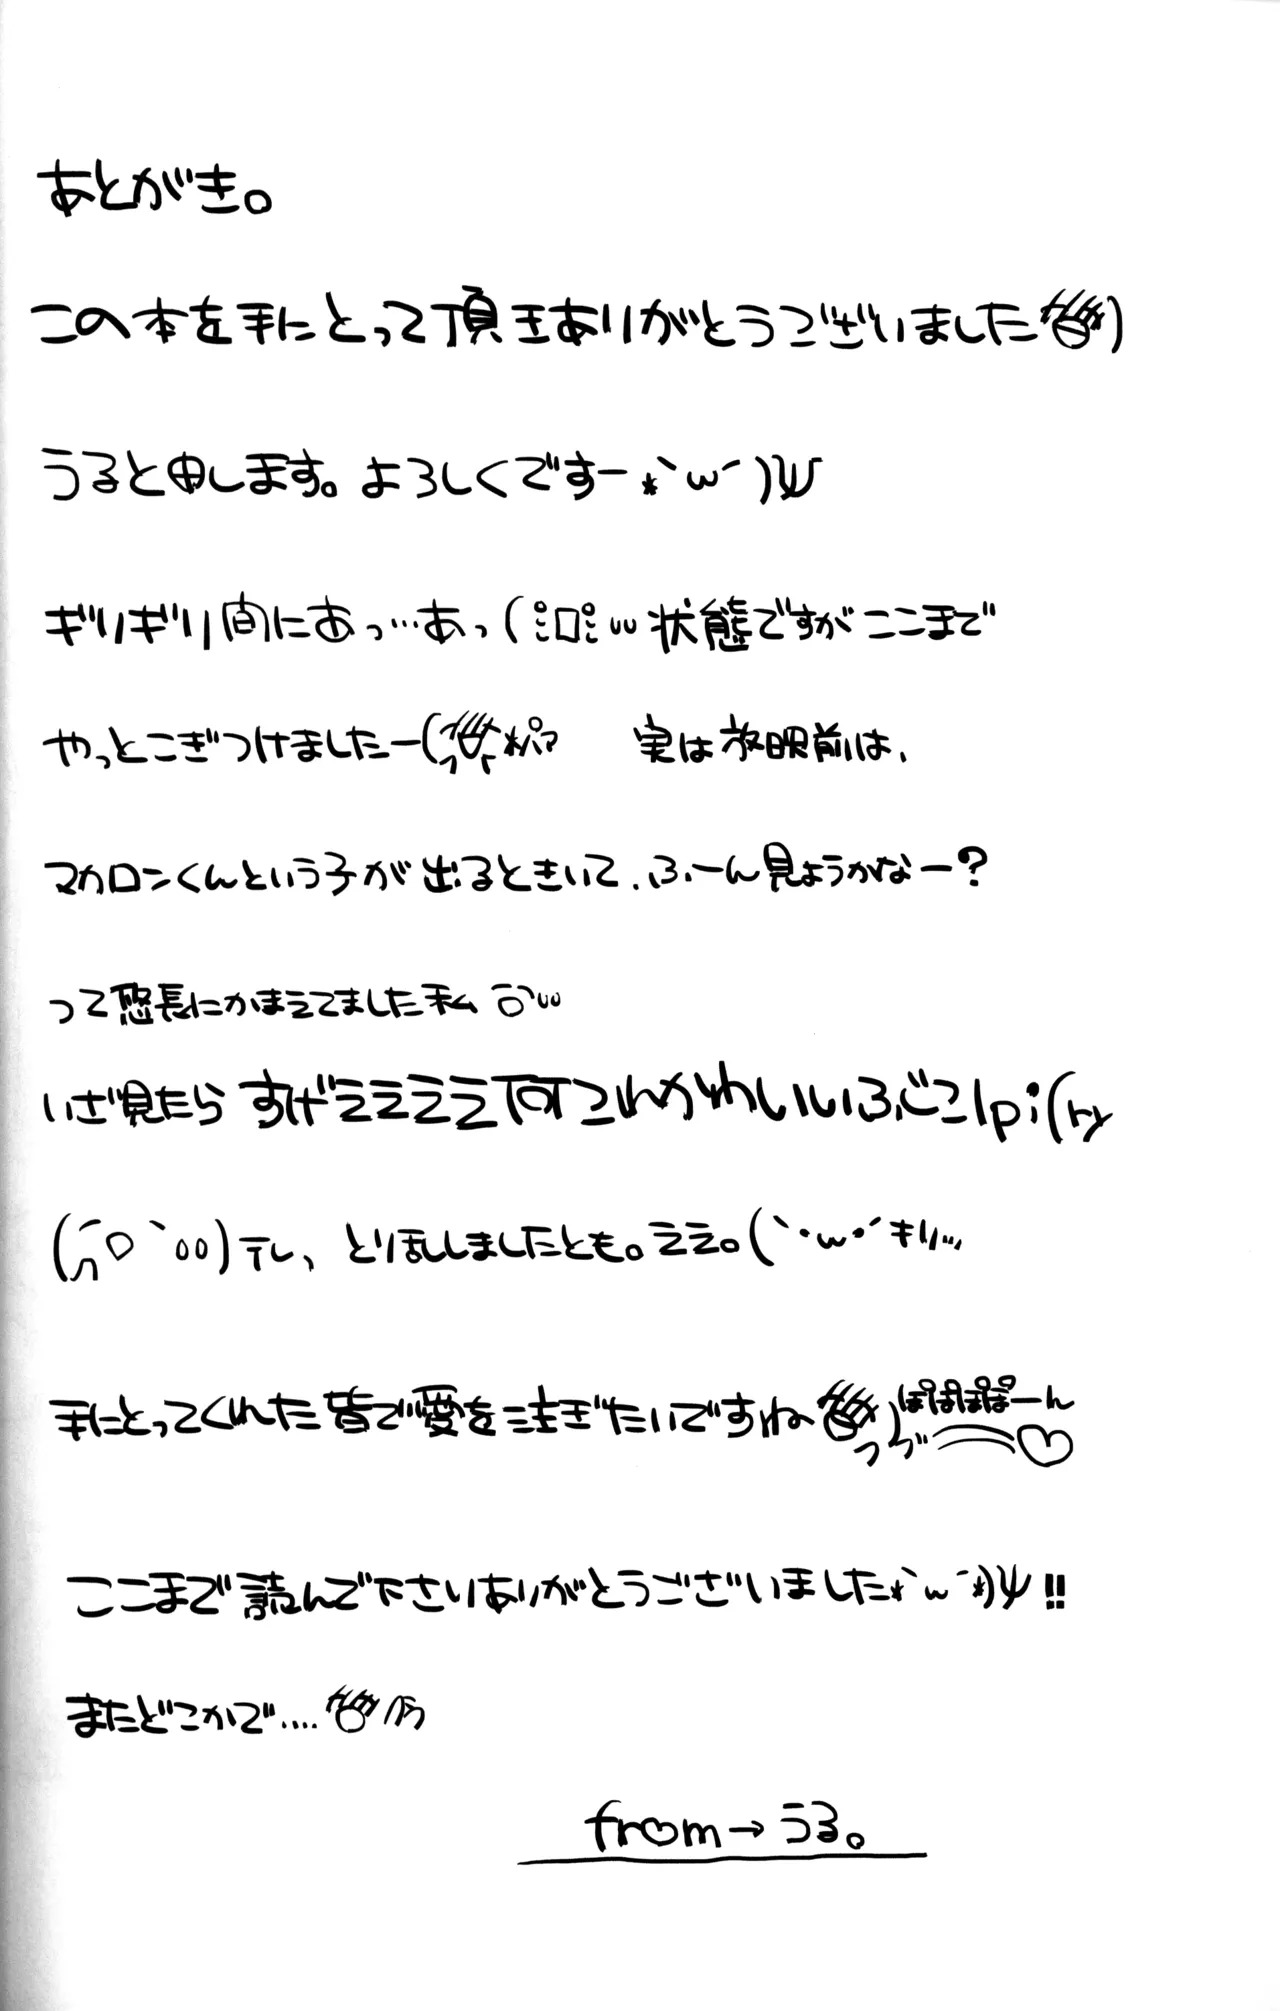 あとがき。
この本を手にとって頂きありがとうございました
うると申します。よろしくですー*`ω´)ψ
ギリギリ間にあっ…あっ(;゚ロ゚;υυ状態ですがここまで
やっとこぎつけましたー( 実は放映前は、
マカロンくんという子が出るときいて、ふーん見ようかなー?
って悠長にかまえてました私
いざ見たらすげええええ何これかわいいいふじこlpi(ry
テレ、とり乱しましたとも。ええ。(`・ω・´キリッ...
手にとってくれた皆で愛を注ぎたいですね ぽぽぽぽーん
ここまで読んで下さりありがとうございました*`ω´*)ψ!!
またどこかで....
from→うる。